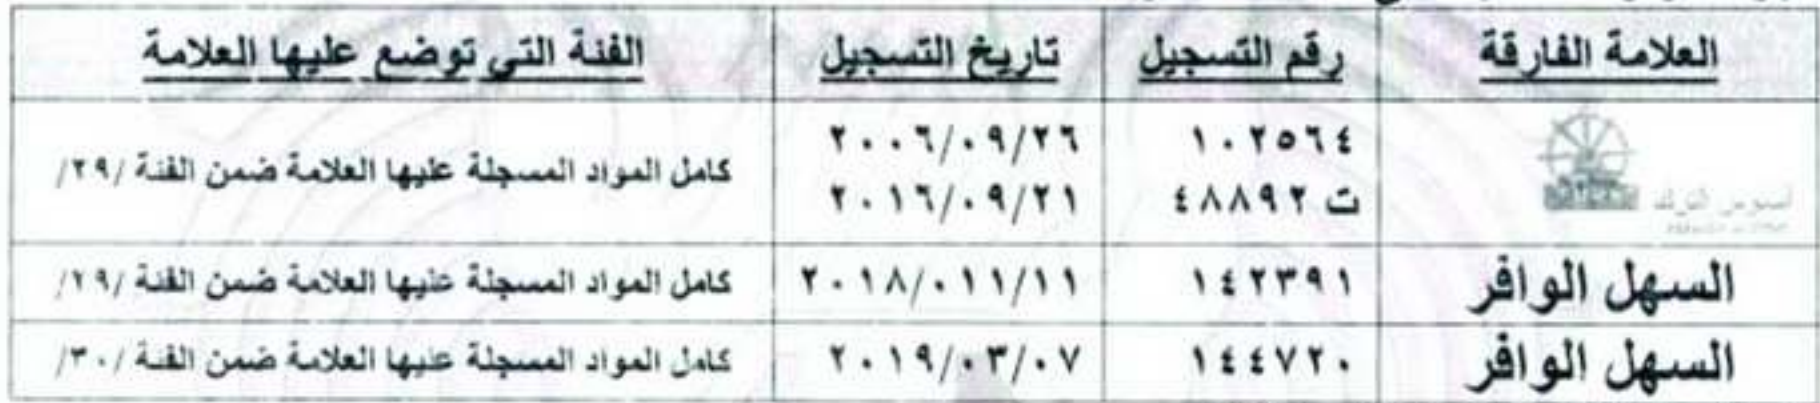 العلامة الفارقة رقم التسجيل تاريخ التسجيل الفئة التي توضع عليها العلامة
١٠٢٥٦٤ ٢٠٠٦/٠٩/٢٦
ت ٤٨٨٩٢ ٢٠١٦/٠٩/٢١
كامل المواد المسجلة عليها العلامة ضمن الفئة /٢٩/
السهل الوافر ١٤٢٣٩١ ٢٠١٨/٠١١/١١ كامل المواد المسجلة عليها العلامة ضمن الفئة /٢٩/
السهل الوافر ١٤٤٧٢٠ ٢٠١٩/٠٣/٠٧ كامل المواد المسجلة عليها العلامة ضمن الفئة /٣٠/